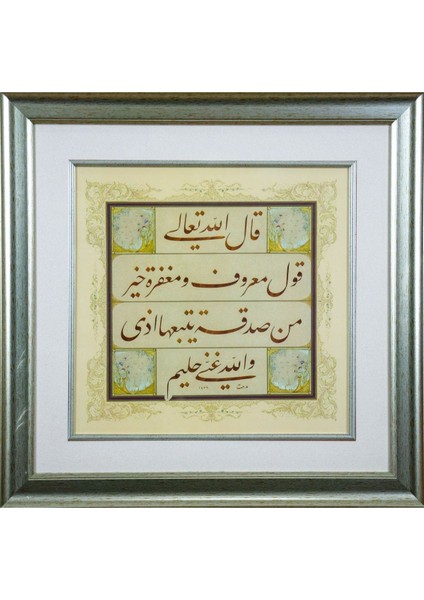 قال الله تعالى
قول معروف و مغفرة خير
من صدقة يتبعها اذى
والله غني حليم